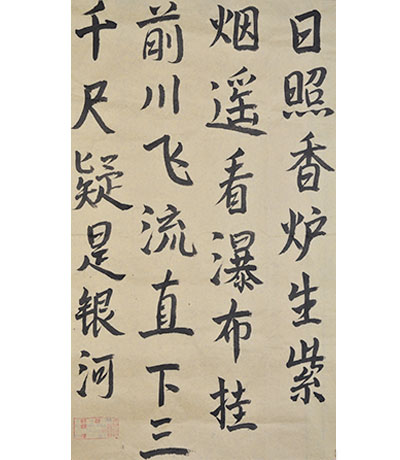 日照香炉生紫
烟遥看瀑布挂
前川飞流直下三
千尺疑是银河